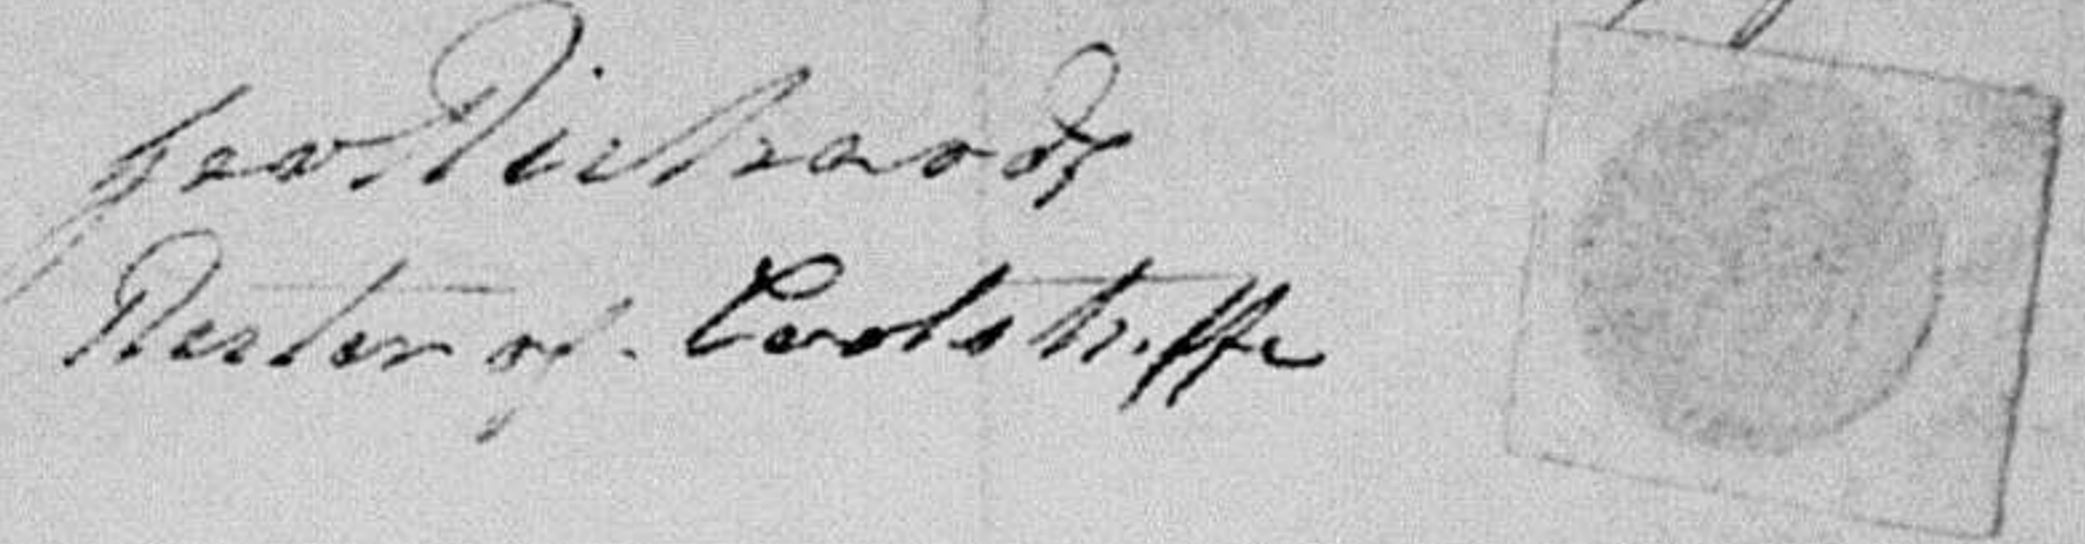 Geo Richards
Rector of Coolstuffe